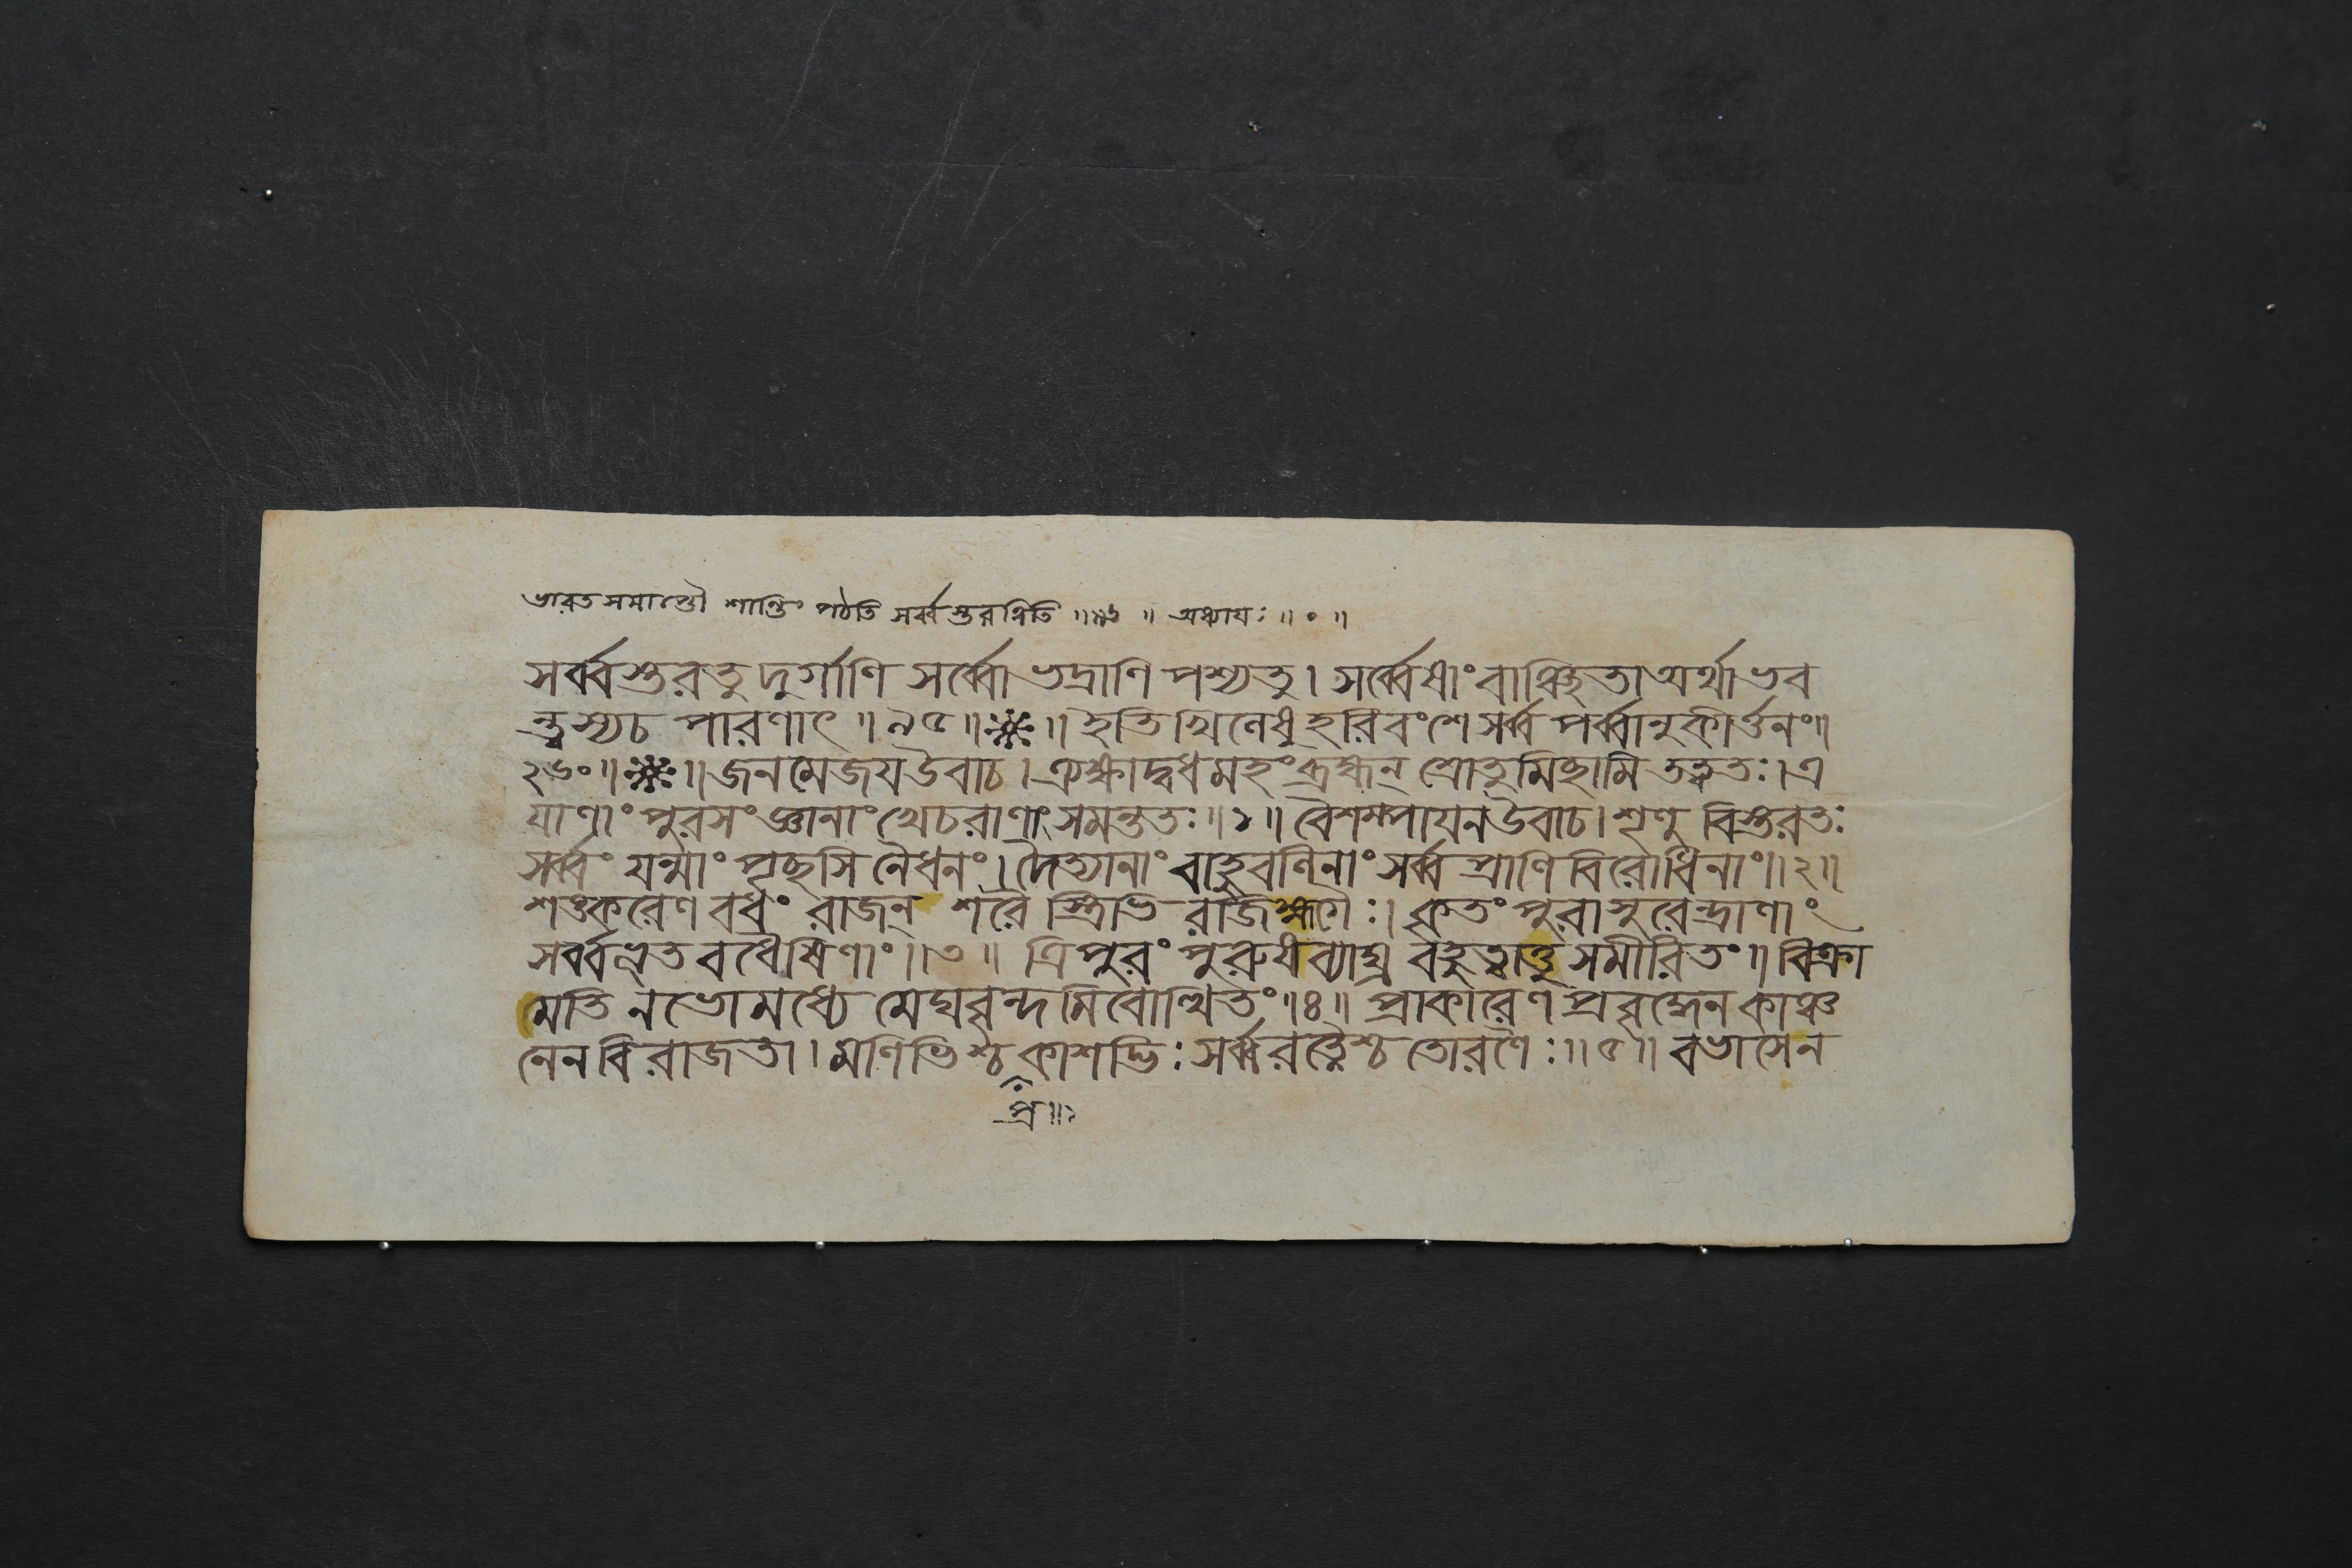 ভারতসমাপ্তৌ শান্তিং পঠতি সর্ব্বস্তরত্বিতি ॥ ৯৬ ॥ অধ্যায়ঃ ॥ ० ॥
সর্ব্বস্তরতু দুর্গাণি সর্ব্বো ভদ্রাণি পশ্যতু। সর্ব্বেষাং বাঞ্ছিতা অর্থা ভব
ন্ত্বস্য চ পারণাৎ ॥ ৯৫ ॥ ॥ ইতি খিলেষু হরিবংশে সর্ব্ব পর্ব্বানুকীর্ত্তনং॥
২৬০ ॥ ॥ জনমেজয় উবাচ। ত্র্যক্ষাদ্বধমহং ব্রহ্মন্ শ্রোতুমিচ্ছামি তত্ত্বতঃ। ত্র
যাণাং পুরসংজ্ঞানাং খেচরাণাং সমন্ততঃ ॥ ১ ॥ বৈশম্পায়ন উবাচ। শৃণু বিস্তরতঃ
সর্ব্বং যন্মাং পৃচ্ছসি নৈধনং। দৈত্যানাং বাহুবলিনাং সর্ব্ব প্রাণি বিরোধিনাং ॥ ২ ॥
শঙ্করেণ বধং রাজন্ শরৈ স্ত্রিভি রজিহ্মগৈঃ। কৃতং পুরাসুরেন্দ্রাণাং
সর্ব্বভূত বধৈষিণাং ॥ ৩ ॥ ত্রিপুরং পুরুষব্যাঘ্র বৃহদ্ধাতু সমীরিতং ॥ বিক্রা
মতি নভোমধ্যে মেঘবৃন্দ মিবোত্থিতং ॥ ৪ ॥ প্রাকারেণ প্রবৃদ্ধেন কাঞ্চ
নেন বিরাজতা। মণিভিশ্চ কাশদ্ভিঃ সর্ব্বরত্নৈশ্চ তোরণৈঃ ॥ ৫ ॥ বভাসে ন
প্র ॥